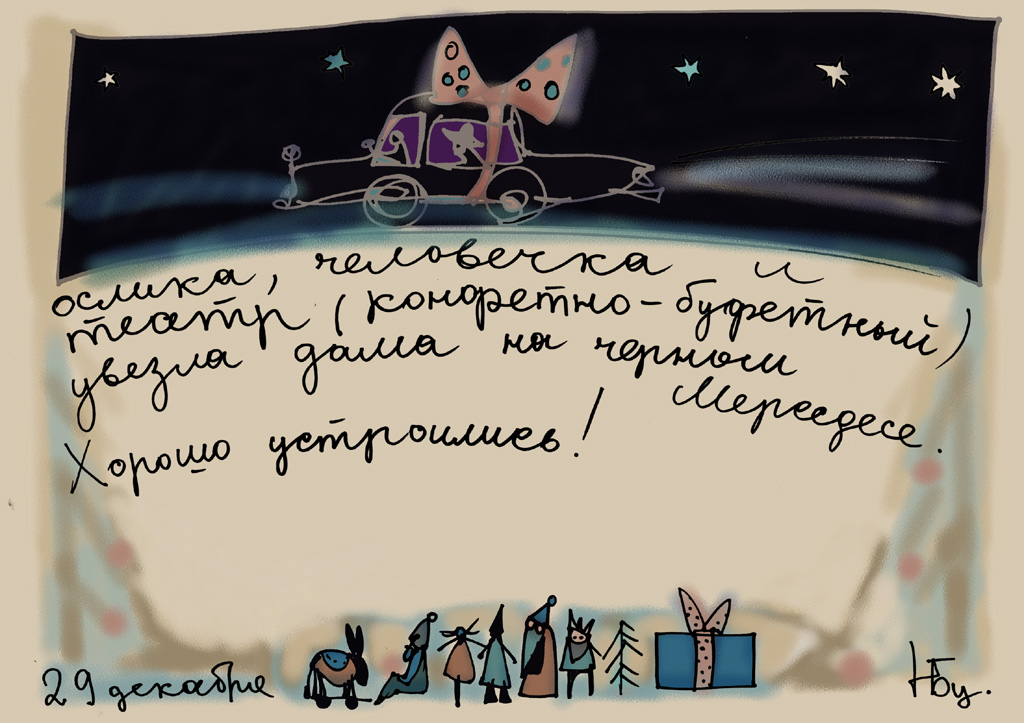 ослика, человечка и
театр (конфетно-буфетный)
увезла дама на черном
Мерседесе.
Хорошо устроились!
29 декабря
НБу.